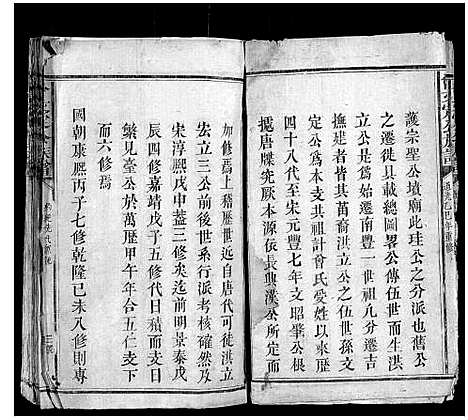 護宗聖公墳廟此珪公之分派也舊公
之遷徙具載總圖畧公傳五世而生洪
立公是始遷南豐一世祖凡分遷吉
撫建者皆其苗裔洪立公七世孫文
定公爲本支提祖計曾氏受姓以來
四十八代至宋元豐七年文昭肇公根
據唐牒究厥本源依長興漢公所定而
加修焉上稽歷世近自唐代可徙洪立
去立三公前後世系行派考核確然及
宋淳熙戊申葢三修矣迄前明景泰戊
辰四修嘉靖戊子五修代日積而支日
繁見臺公於萬歷甲午年合五仁支下
而六修焉
國朝康熙丙子七修乾隆己未八修則專